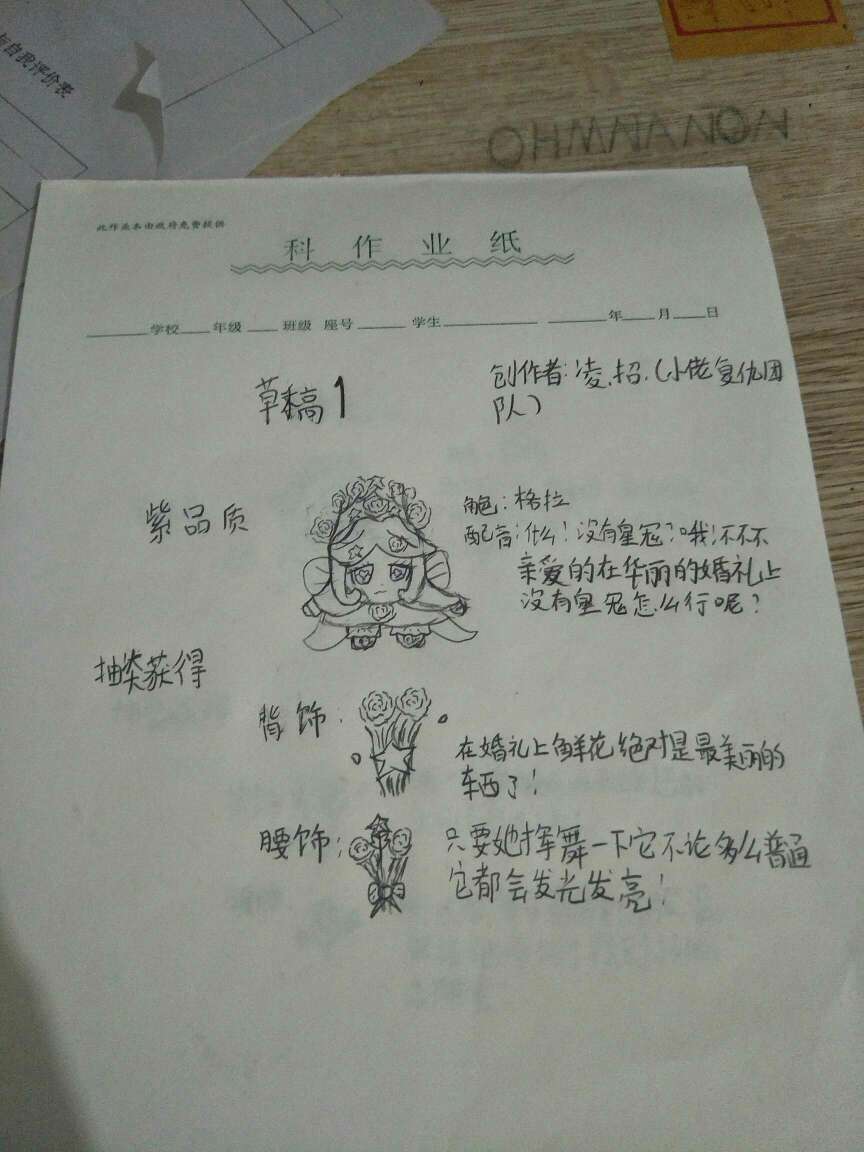 与自我评价表
OHMNANON
此作业本由政府免费提供
科 作 业 纸
学校 年级 班级 座号 学生 年 月 日
草稿1
创作者:凌.招.(小佬复仇团
队)
紫品质
角色:格拉
配音:什么!没有皇冠?哦!不不不
亲爱的在华丽的婚礼上
没有皇冠怎么行呢?
抽奖获得
背饰:
在婚礼上鲜花绝对是最美丽的
东西了!
腰饰:
只要她挥舞一下它不论多么普通
它都会发光发亮!